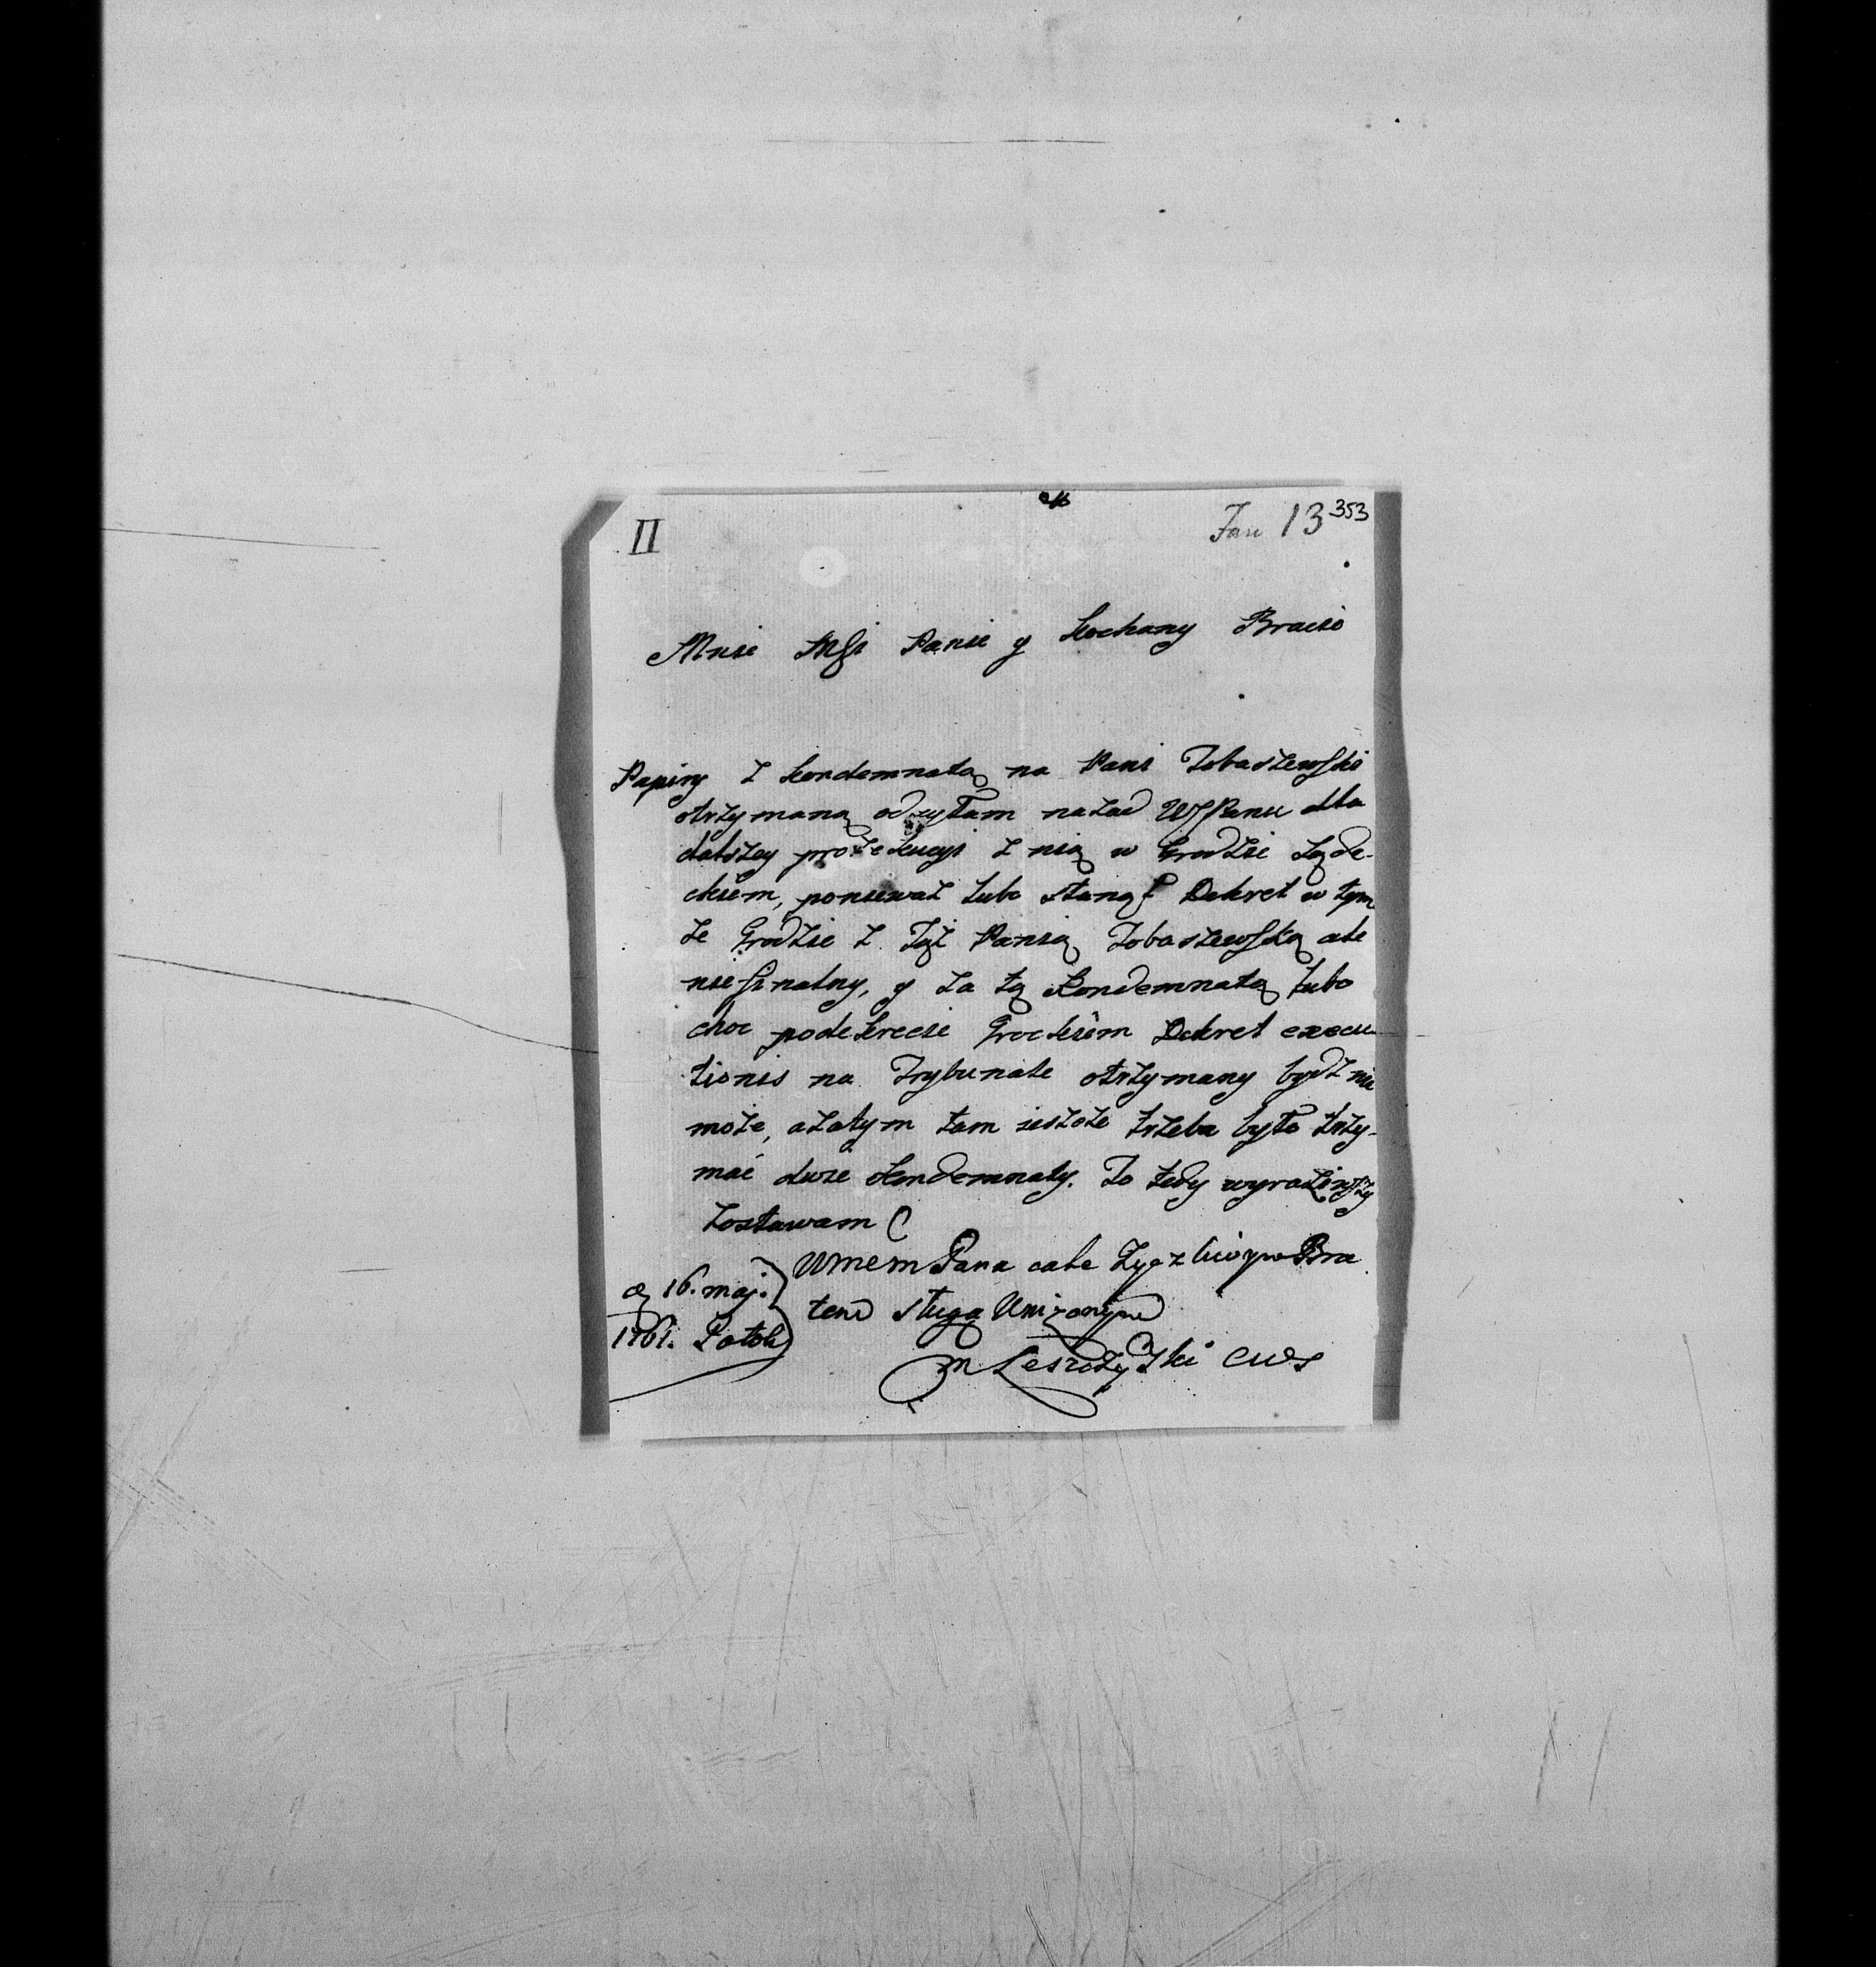 II
Fau 13 353
Mnie Mſi Panie y Kochany Bracie
Papiry z kondemnatą na Pani Zobaszewſki
otrzymaną odsyłam nazad WſPanu dla
dalszey prozekucyi z nią w Grodzie Sąde-
ckiem, poniewaz lubo stanął Dekret w tym
ze Grodzie z Tąż Panią Zobaszewſką ale
nieſinalny, y za tą Kondemnatą lubo
choc podekrecie Grockiem Dekret execu
tionis na Trybunale otrzymany bydz nie
może, azatym tam ieszcze trzeba było trzy-
mać dwie Kondemnaty. To tedy wyraziwszy
zostawam
WmemPana cale Zyczliwym Bra
tem sługą Unizonym
d 16. maj.
1761. Potok
m Leszczyński cws